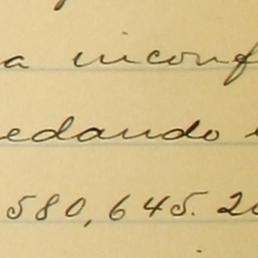 a inconf
edando
580,645.20